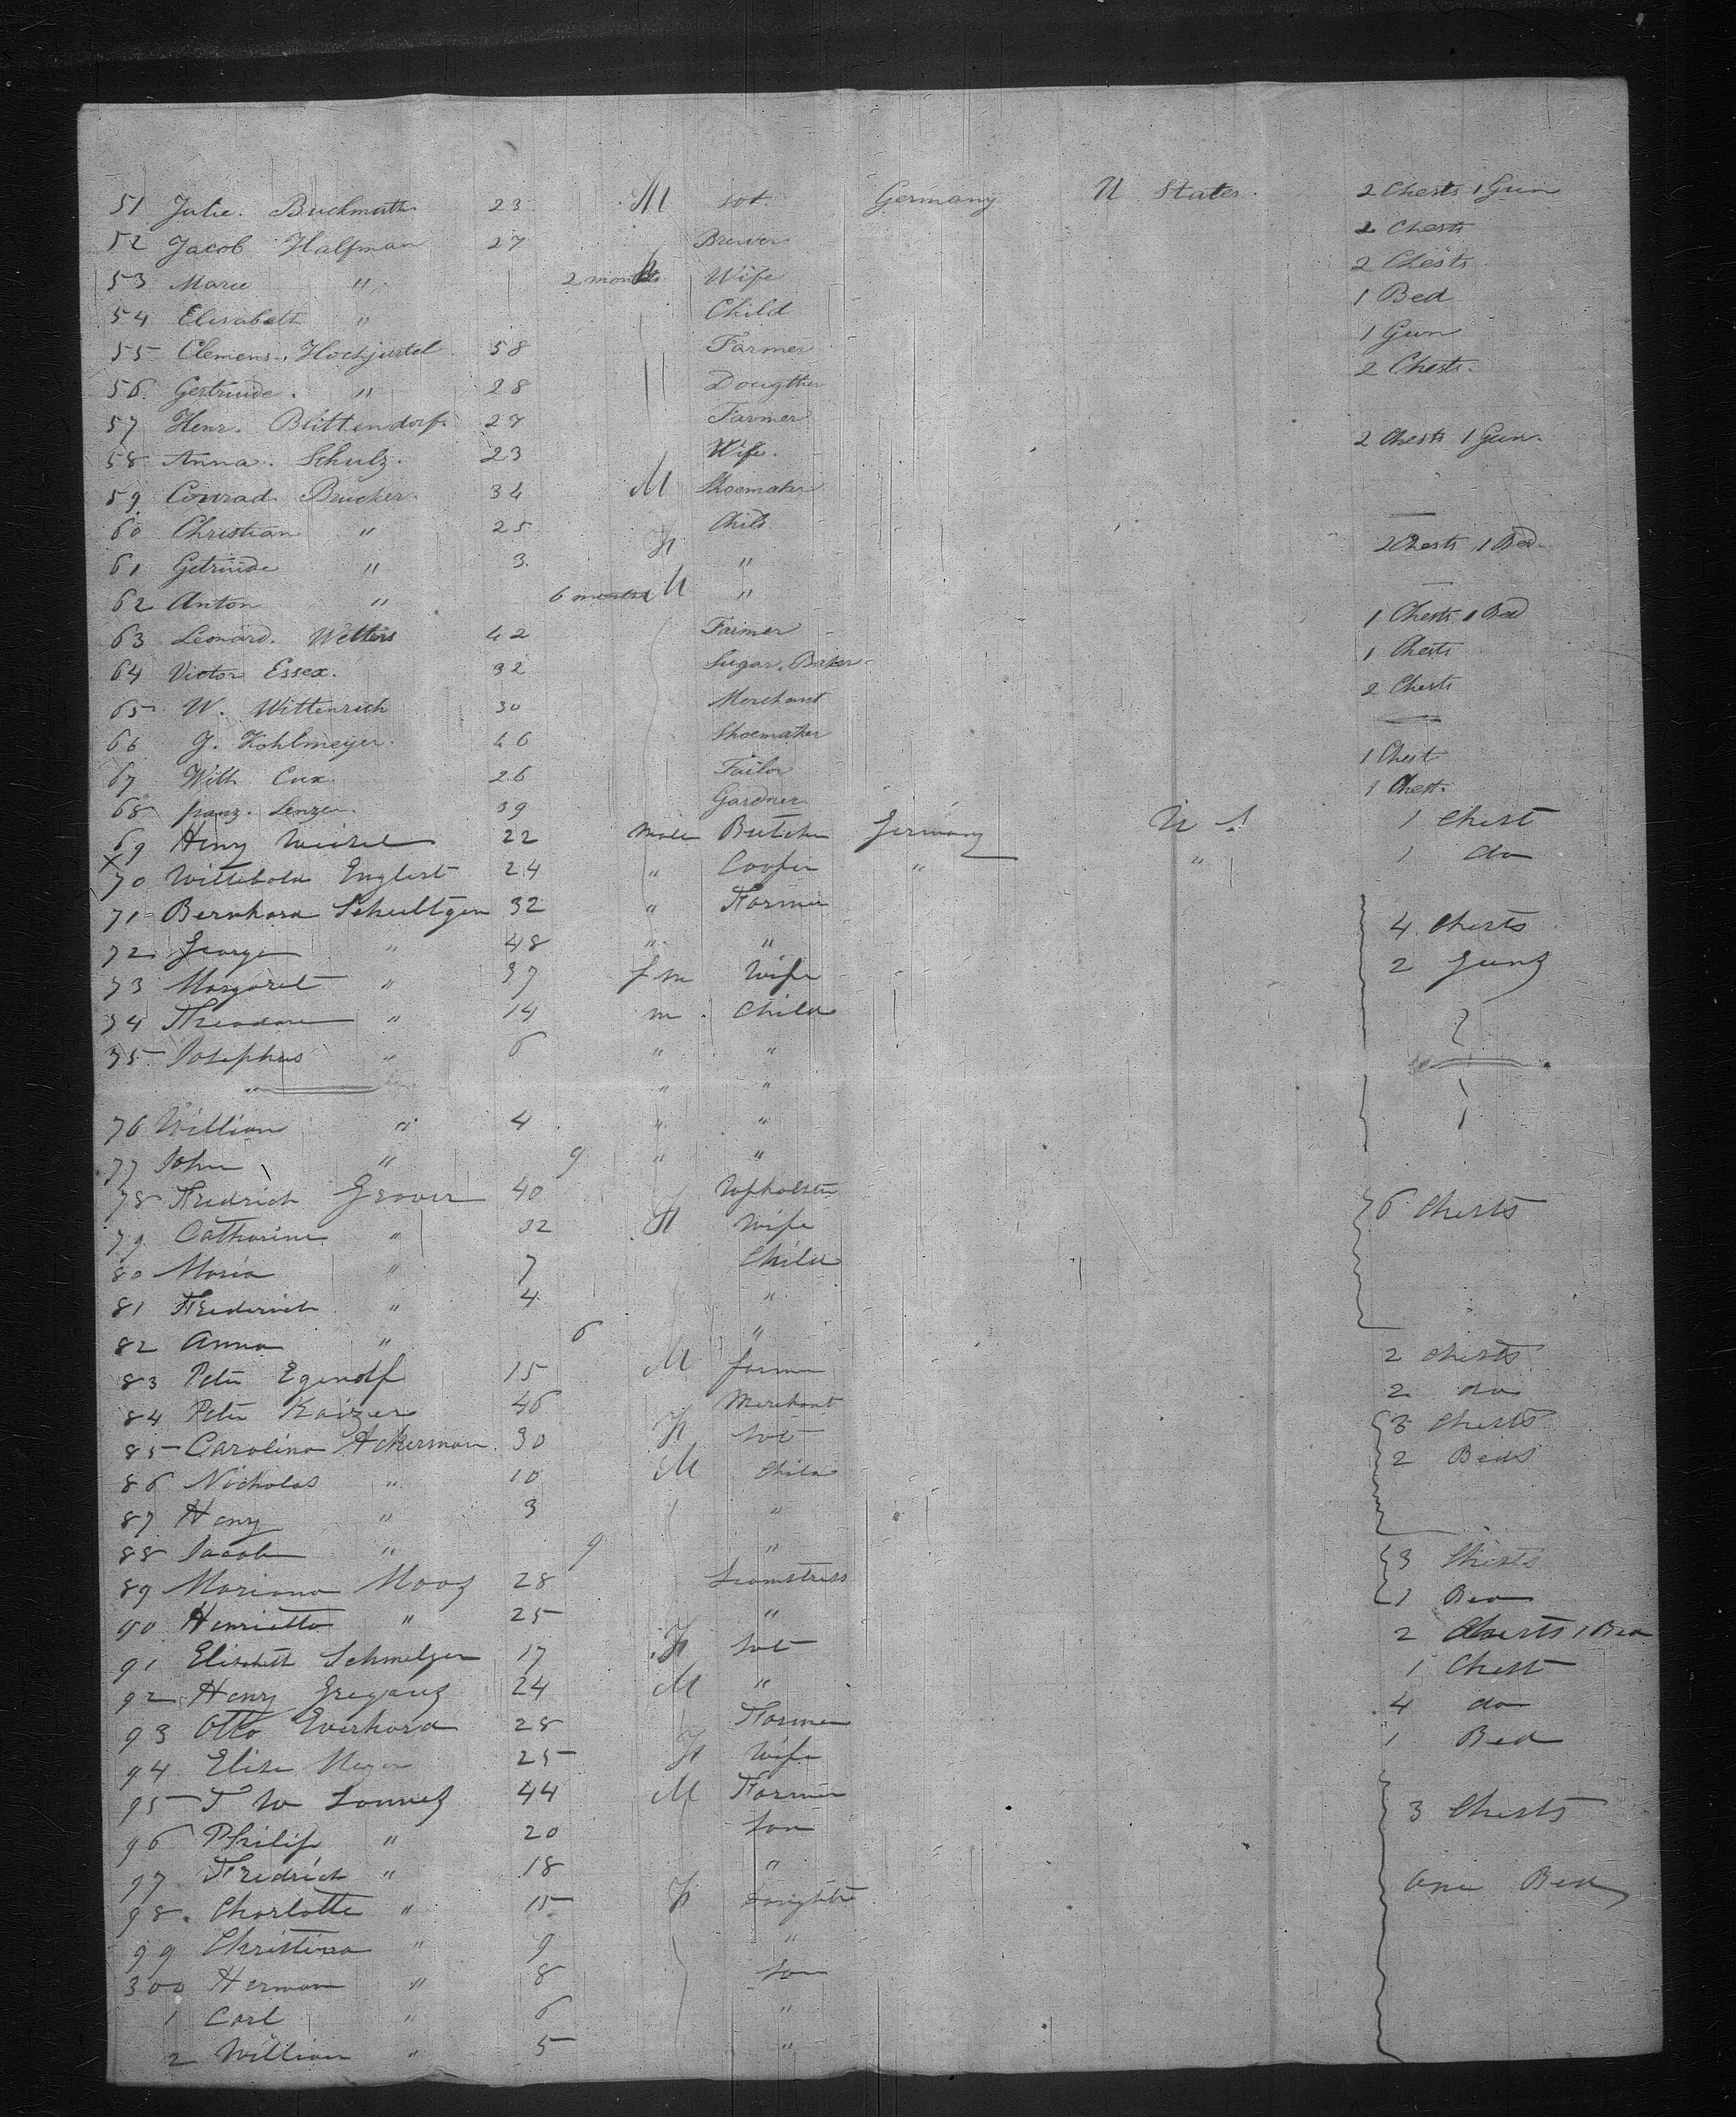 51 Julie. Buckmuth 23 M sot. Germany U States 2 Chests 1 Gun
52 Jacob Halfman 27 Brewer 2 Chests
53 Marie " 2 months Wife 2 Chests
54 Elisabeth " Child 1 Bed
55 Clemens. Hochjurtel 58 Farmer 1 Gun
56. Gertruide. " 28 Dougther 2 Chests.
57 Henr. Blittendorf. 27 Farmer
58 Anna. Schulz. 23 Wife. 2 Chests 1 Gun.
59 Conrad Brucker. 34 M Shoemaker
60 Christian " 25 Child
61 Getruide " 3. F " 2 Chests 1 Bed
62 Anton " 6 months M "
63 Leonard. Welters 42 Farmer 1 Chests 1 Bed
64 Victor Essex. 32 Sugar. Baker 1 Chests
65 W. Wittenrich 30 Merchant 2 Chests
66 J. Kohlmeyer. 46 Shoemaker
67 With Cux 26 Tailor 1 Chest
68 franz. Lenzen. 39 Gardner 1 Chest.
69 Heny Weisel 22 Male Butcher Germany U S. 1 Chest
x 70 Wittebold Englert 24 " Cooper " " 1 do
71 Bernhard Schultgen 32 " Farmer
72 George " 48 " " 4 Chests
73 Margaret " 37 fm Wife 2 Guns
74 Theodore " 14 m. Child
75 Josephus " 6 " "
" " "
76 William " 4 " "
77 John " 9 " "
78 Fredrich Grover 40 Upholster 6 Chests
79 Catharine " 32 F Wife
80 Maria " 7 Child
81 Frederick " 4 "
82 Anna " 6 "
83 Peter Egendlf 15 M farmer 2 Chests
84 Peter Kaizer 46 Merchant 2 do
85 Carolina Ackerman. 30 F sot 3 Chests
86 Nicholas " 10 M Child 2 Beds
87 Heny " 3 "
88 Jacob " 9 "
89 Mariana Moog 28 Seamstress 3 Chests
90 Henrietta " 25 " 1 Bed
91 Elisabeth Schmelzer 17 F sot 2 Chests 1 Bed
92 Henry 24 M " 1 Chest
93 Otto Everhard 28 Farmer 4 do
94 Elise Meyer 25 F Wife 1 Bed
95 F W 44 M Farmer
96 Philip " 20 Son 3 Chests
97 Fredrich " 18 "
98. Charlotte " 15 F Daughter One Bed
99 Christina " 9 "
300 Herman " 8 Son
1 Carl " 6 "
2 William " 5 "